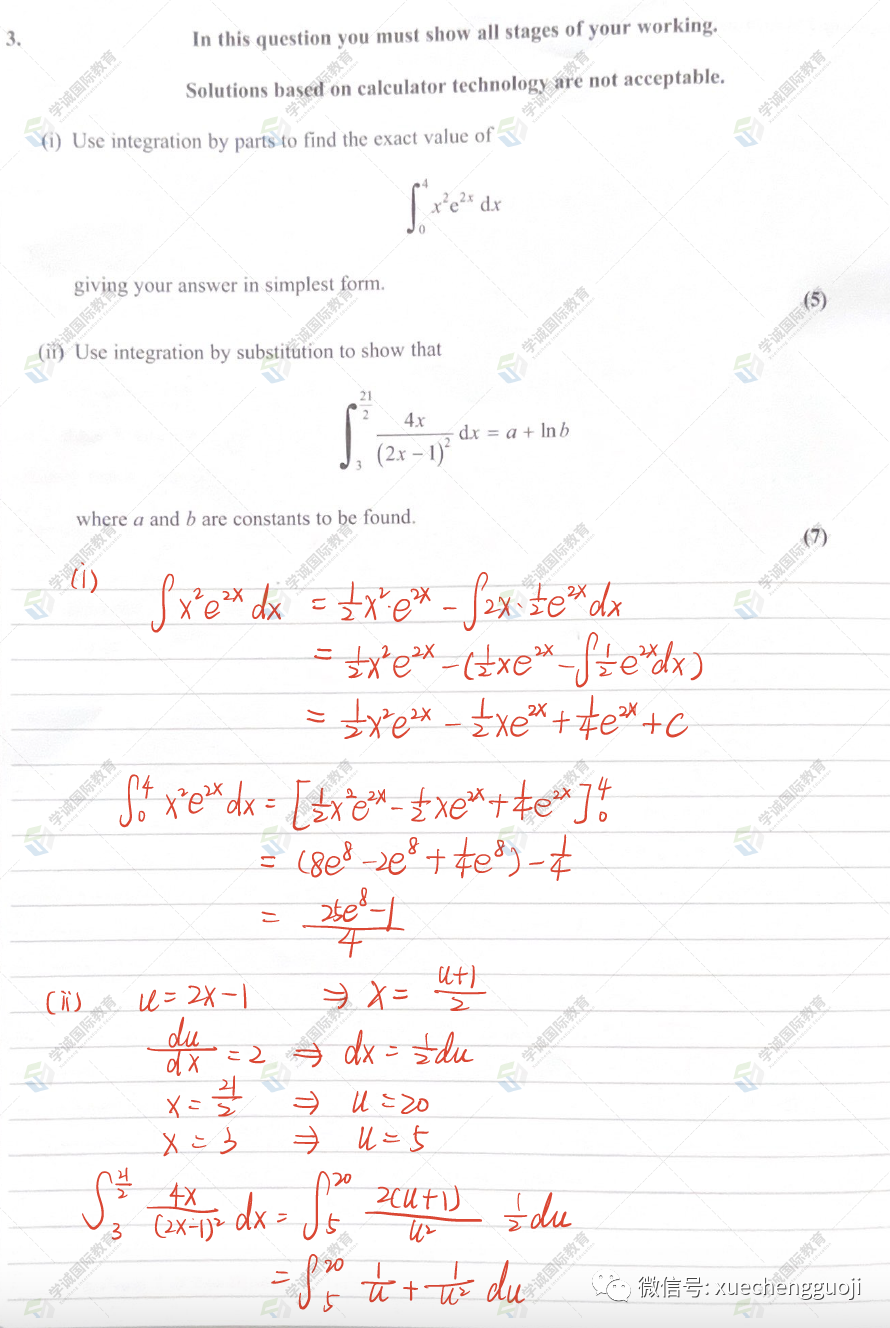 3. In this question you must show all stages of your working.
Solutions based on calculator technology are not acceptable.
(i) Use integration by parts to find the exact value of
∫₀⁴ x²e²ˣ dx
giving your answer in simplest form.
(5)
(ii) Use integration by substitution to show that
∫₃^(21/2) 4x/(2x − 1)² dx = a + ln b
where a and b are constants to be found.
(7)
(i) ∫x²e²ˣ dx = ½x²·e²ˣ − ∫2x·½e²ˣdx
= ½x²e²ˣ − (½xe²ˣ − ∫½e²ˣdx)
= ½x²e²ˣ − ½xe²ˣ + ¼e²ˣ + C
∫₀⁴ x²e²ˣ dx = [½x²e²ˣ − ½xe²ˣ + ¼e²ˣ]₀⁴
= (8e⁸ − 2e⁸ + ¼e⁸) − ¼
= (25e⁸ − 1)/4
(ii) u = 2x − 1 ⇒ x = (u+1)/2
du/dx = 2 ⇒ dx = ½du
x = 21/2 ⇒ u = 20
x = 3 ⇒ u = 5
∫₃^(21/2) 4x/(2x−1)² dx = ∫₅²⁰ 2(u+1)/u² ½du
= ∫₅²⁰ 1/u + 1/u² du
微信号: xuechengguoji
学诚国际教育